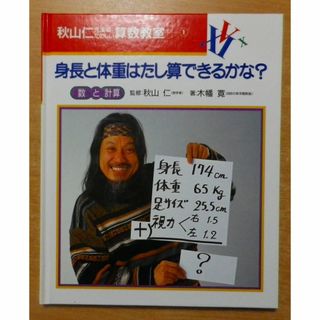 秋山仁 算数教室 1
身長と体重はたし算できるかな?
数と計算 監修 秋山 仁 著 木幡 寛
身長 174cm
体重 65Kg
足サイズ 25.5cm
視力 右 1.5
左 1.2
+)
?